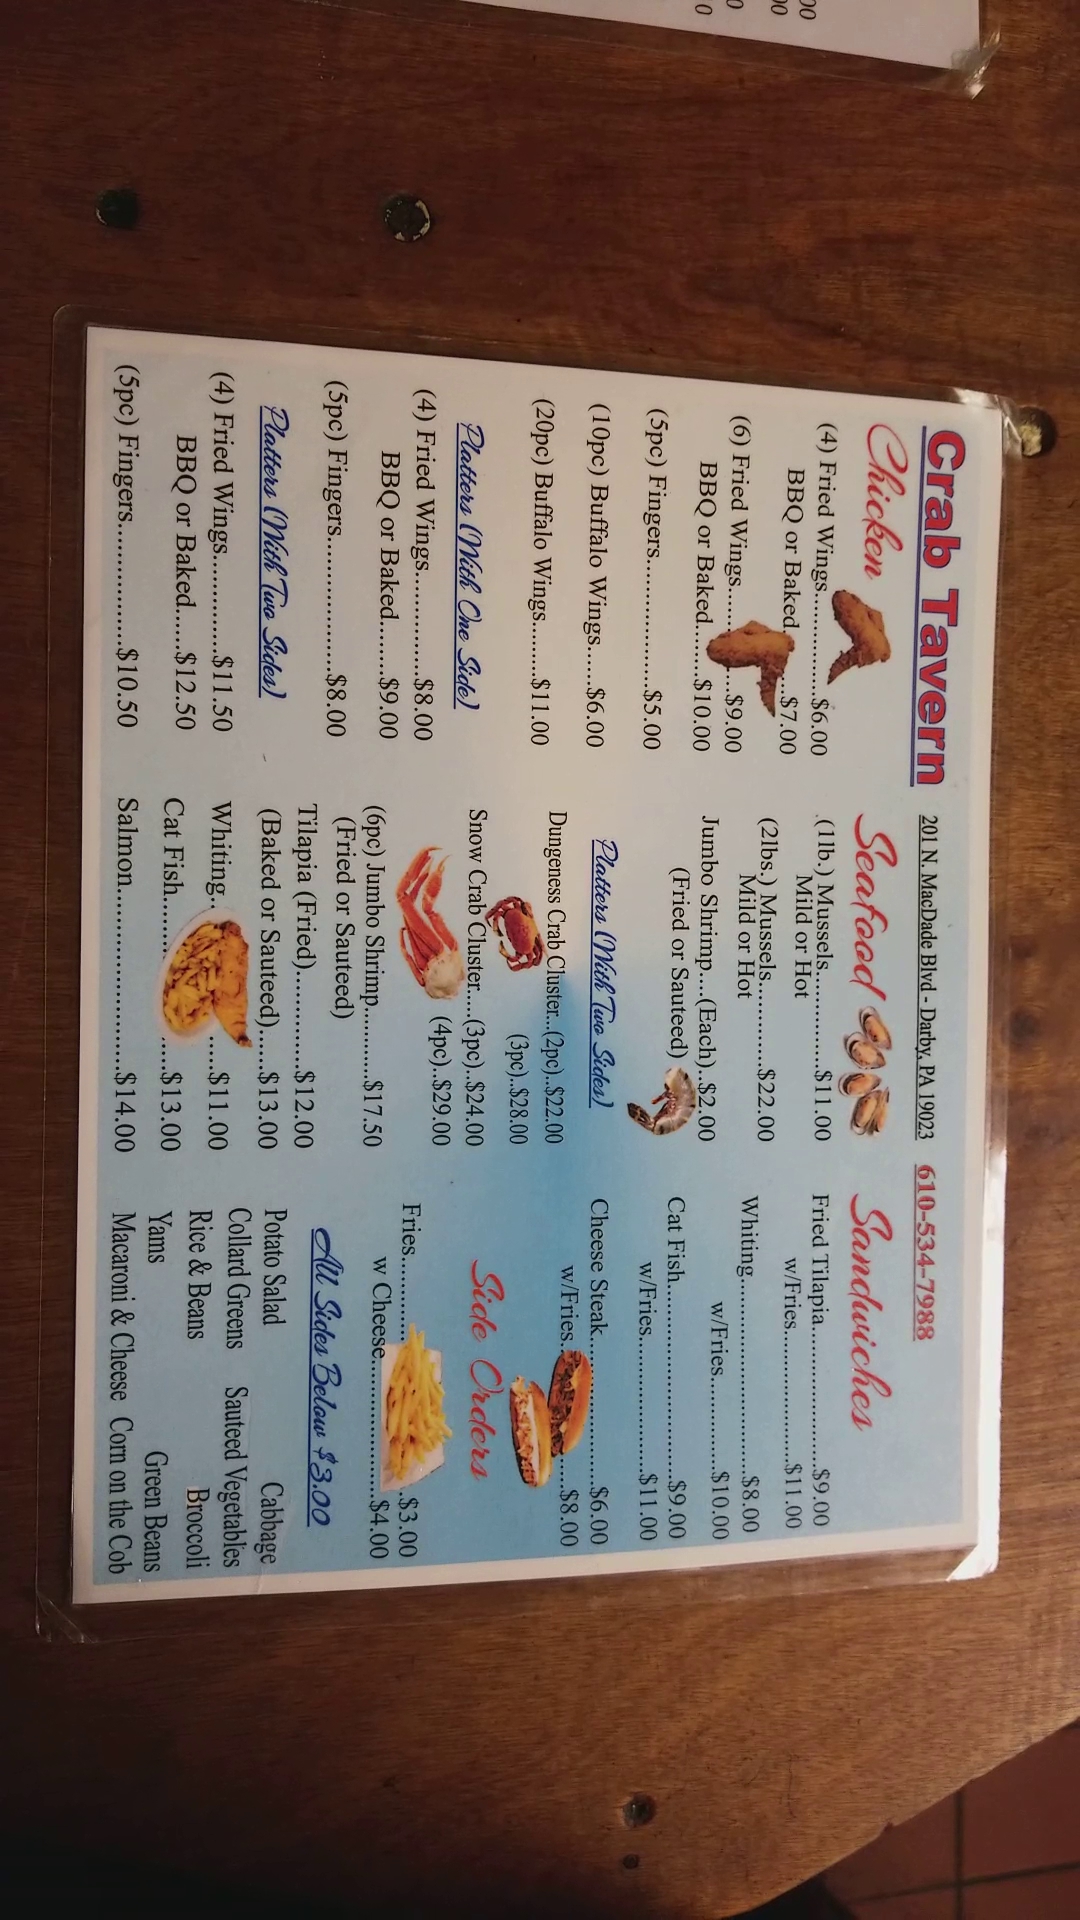 Crab Tavern 201 N. MacDade Blvd - Darby, PA 19023 610-534-7988
Chicken
(4) Fried Wings............$6.00
BBQ or Baked...$7.00
(6) Fried Wings......$9.00
BBQ or Baked......$10.00
(5pc) Fingers...............$5.00
(10pc) Buffalo Wings......$6.00
(20pc) Buffalo Wings........$11.00
Platters (With One Side)
(4) Fried Wings............$8.00
BBQ or Baked........$9.00
(5pc) Fingers..................$8.00
Platters (With Two Sides)
(4) Fried Wings..........$11.50
BBQ or Baked......$12.50
(5pc) Fingers...............$10.50
Seafood
(1lb.) Mussels............$11.00
Mild or Hot
(2lbs.) Mussels...........$22.00
Mild or Hot
Jumbo Shrimp....(Each)..$2.00
(Fried or Sauteed)
Platters (With Two Sides)
Dungeness Crab Cluster...(2pc)..$22.00
(3pc)..$28.00
Snow Crab Cluster....(3pc)..$24.00
(4pc)..$29.00
(6pc) Jumbo Shrimp..........$17.50
(Fried or Sauteed)
Tilapia (Fried)............$12.00
(Baked or Sauteed).....$13.00
Whiting.......$11.00
Cat Fish............$13.00
Salmon......................$14.00
Sandwiches
Fried Tilapia.................$9.00
w/Fries....................$11.00
Whiting........................$8.00
w/Fries..............$10.00
Cat Fish........................$9.00
w/Fries....................$11.00
Cheese Steak..................$6.00
w/Fries......$8.00
Side Orders
Fries............$3.00
w Cheese..................$4.00
All Sides Below $3.00
Potato Salad Cabbage
Collard Greens Sauteed Vegetables
Rice & Beans Broccoli
Yams Green Beans
Macaroni & Cheese Corn on the Cob